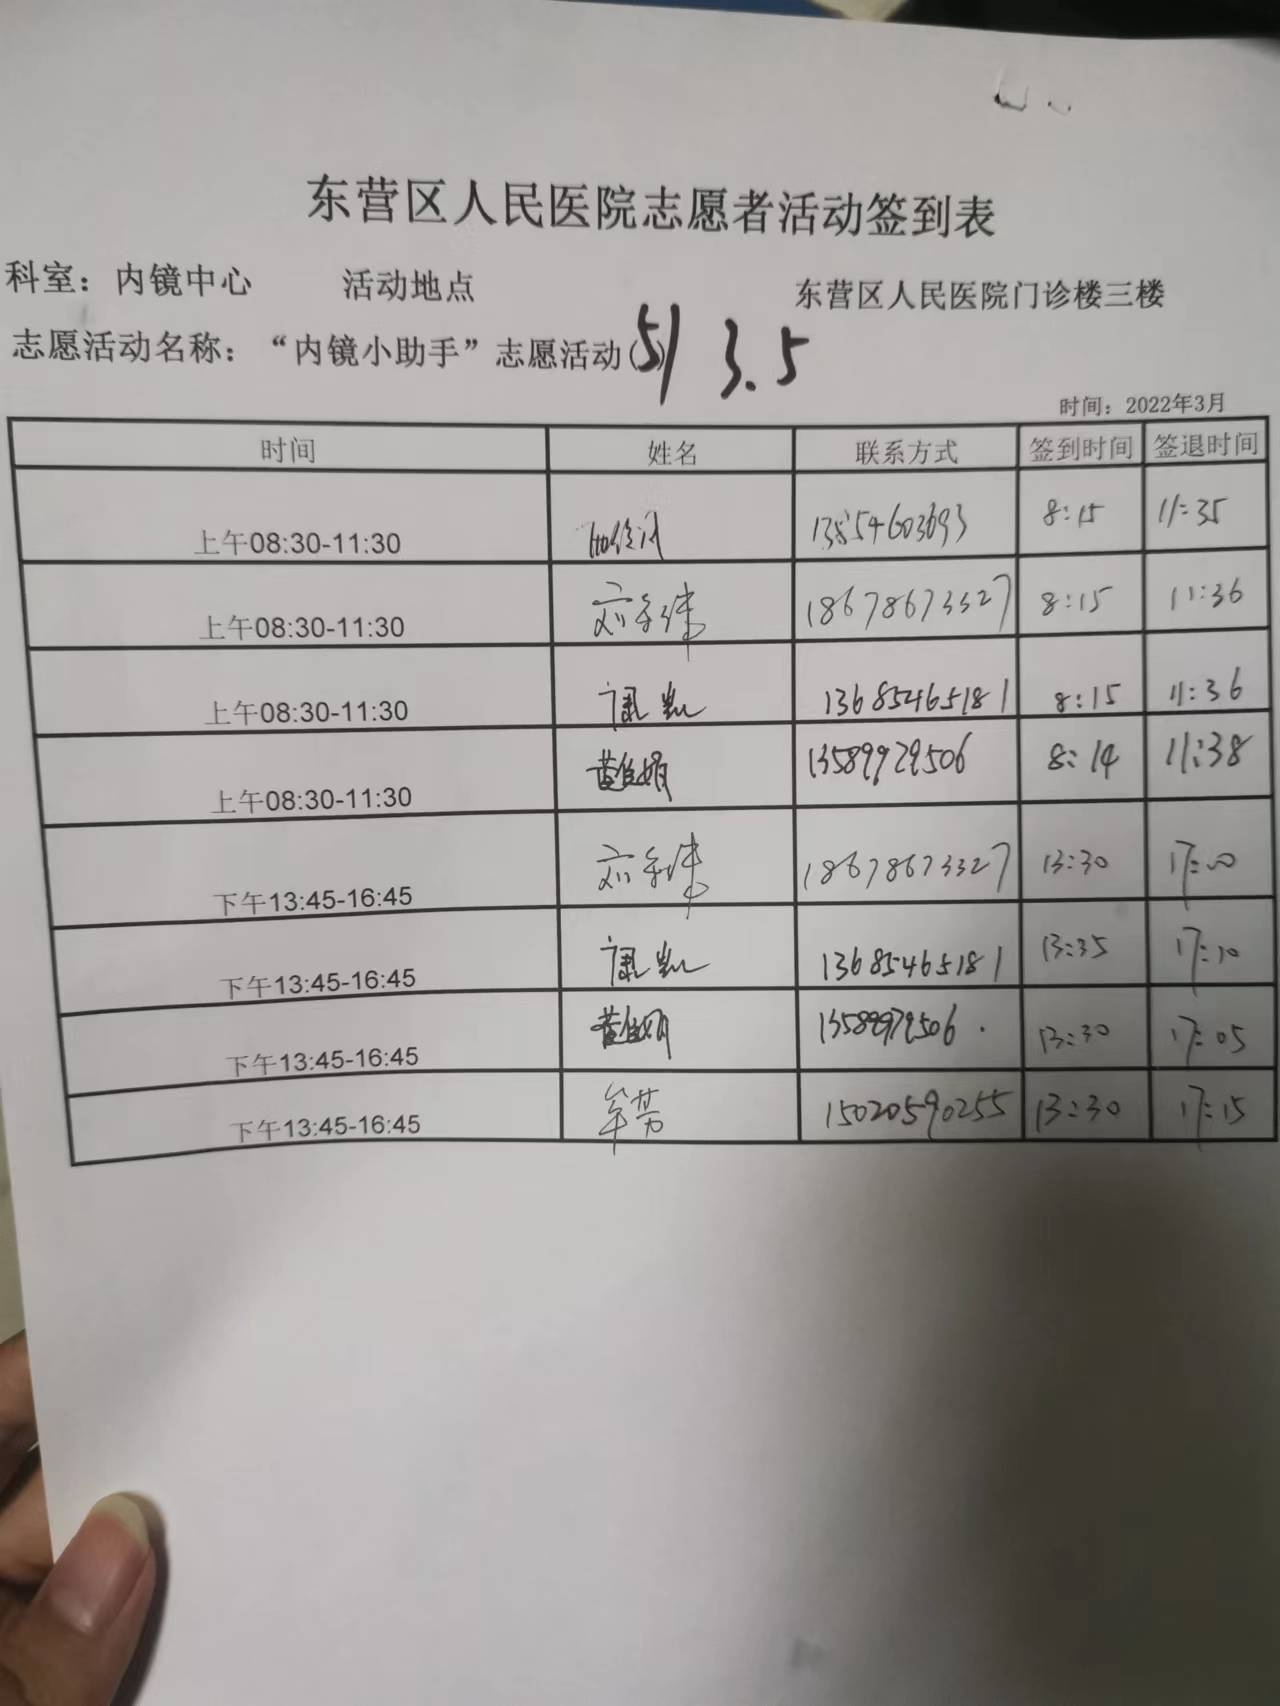 东营区人民医院志愿者活动签到表
科室：内镜中心 活动地点 东营区人民医院门诊楼三楼
志愿活动名称：“内镜小助手”志愿活动(5) 3.5
时间：2022年3月
时间 姓名 联系方式 签到时间 签退时间
上午08:30-11:30 13854603693 8:15 11:35
上午08:30-11:30 18678673327 8:15 11:36
上午08:30-11:30 13685465181 8:15 11:36
上午08:30-11:30 13589979506 8:14 11:38
下午13:45-16:45 18678673327 13:30 17:00
下午13:45-16:45 13685465181 13:35 17:10
下午13:45-16:45 13589979506 13:30 17:05
下午13:45-16:45 牟芳 15020590255 13:30 17:15